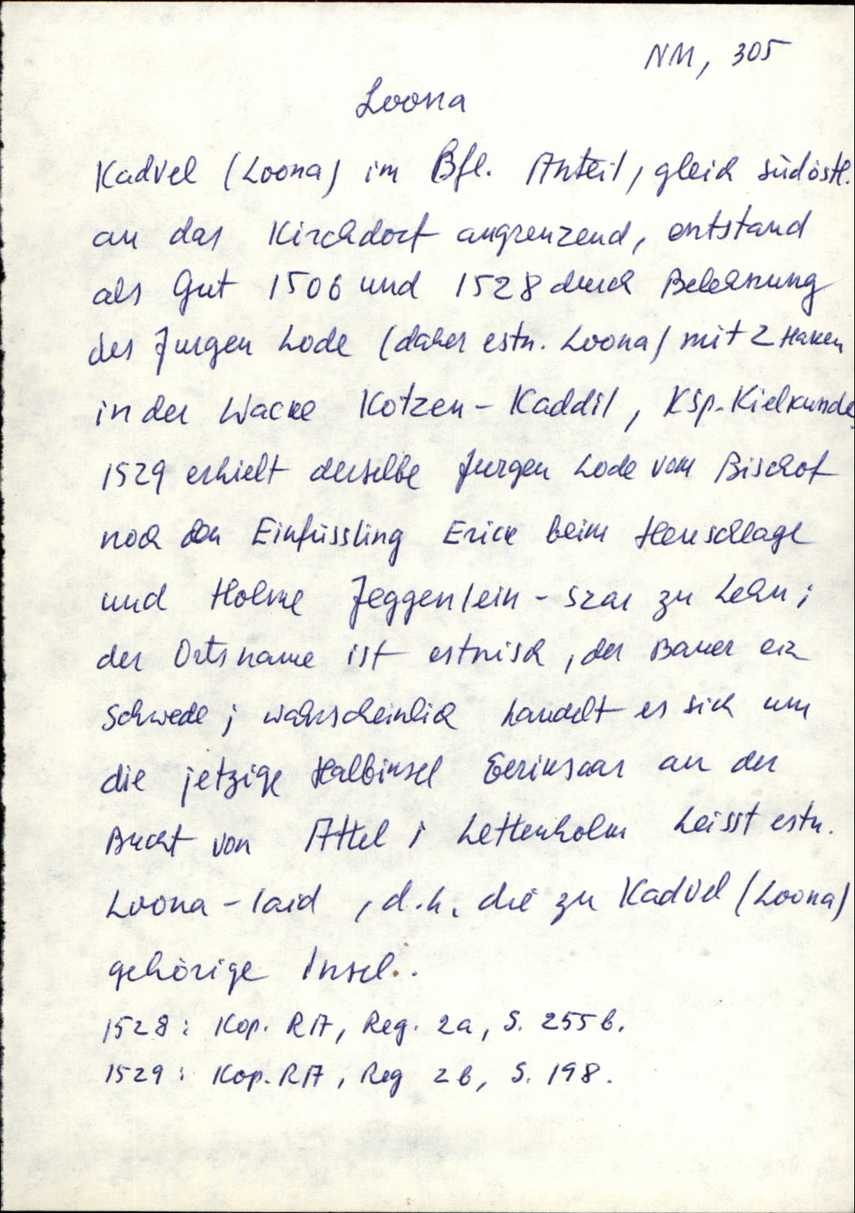 NM, 305
Loona
Kadvel (Loona) im Bfl. Anteil, gleich südöstl.
an das Kirchdorf angrenzend, entstand
als Gut 1506 und 1528 durch Belehnung
des Jurgen Lode (daher estn. Loona) mit 2 Haken
in der Wacke Kotzen-Kaddil, Ksp. Kielkunde,
1529 erhielt derselbe Jurgen Lode vom Bischof
noch den Einfüssling Erick beim Heuschlage
und Holme Jeggenlein-szar zu Lehn;
der Ortsname ist estnisch, der Bauer ein
Schwede; wahrscheinlich handelt es sich um
die jetzige Halbinsel Eerinsaar an der
Bucht von Attel; Lettenholm heisst estn.
Loona-laid, d.h. die zu Kadvel (Loona)
gehörige Insel..
1528: Kop. RA, Reg. 2a, S. 255b.
1529: Kop. RA, Reg 2b, S. 198.